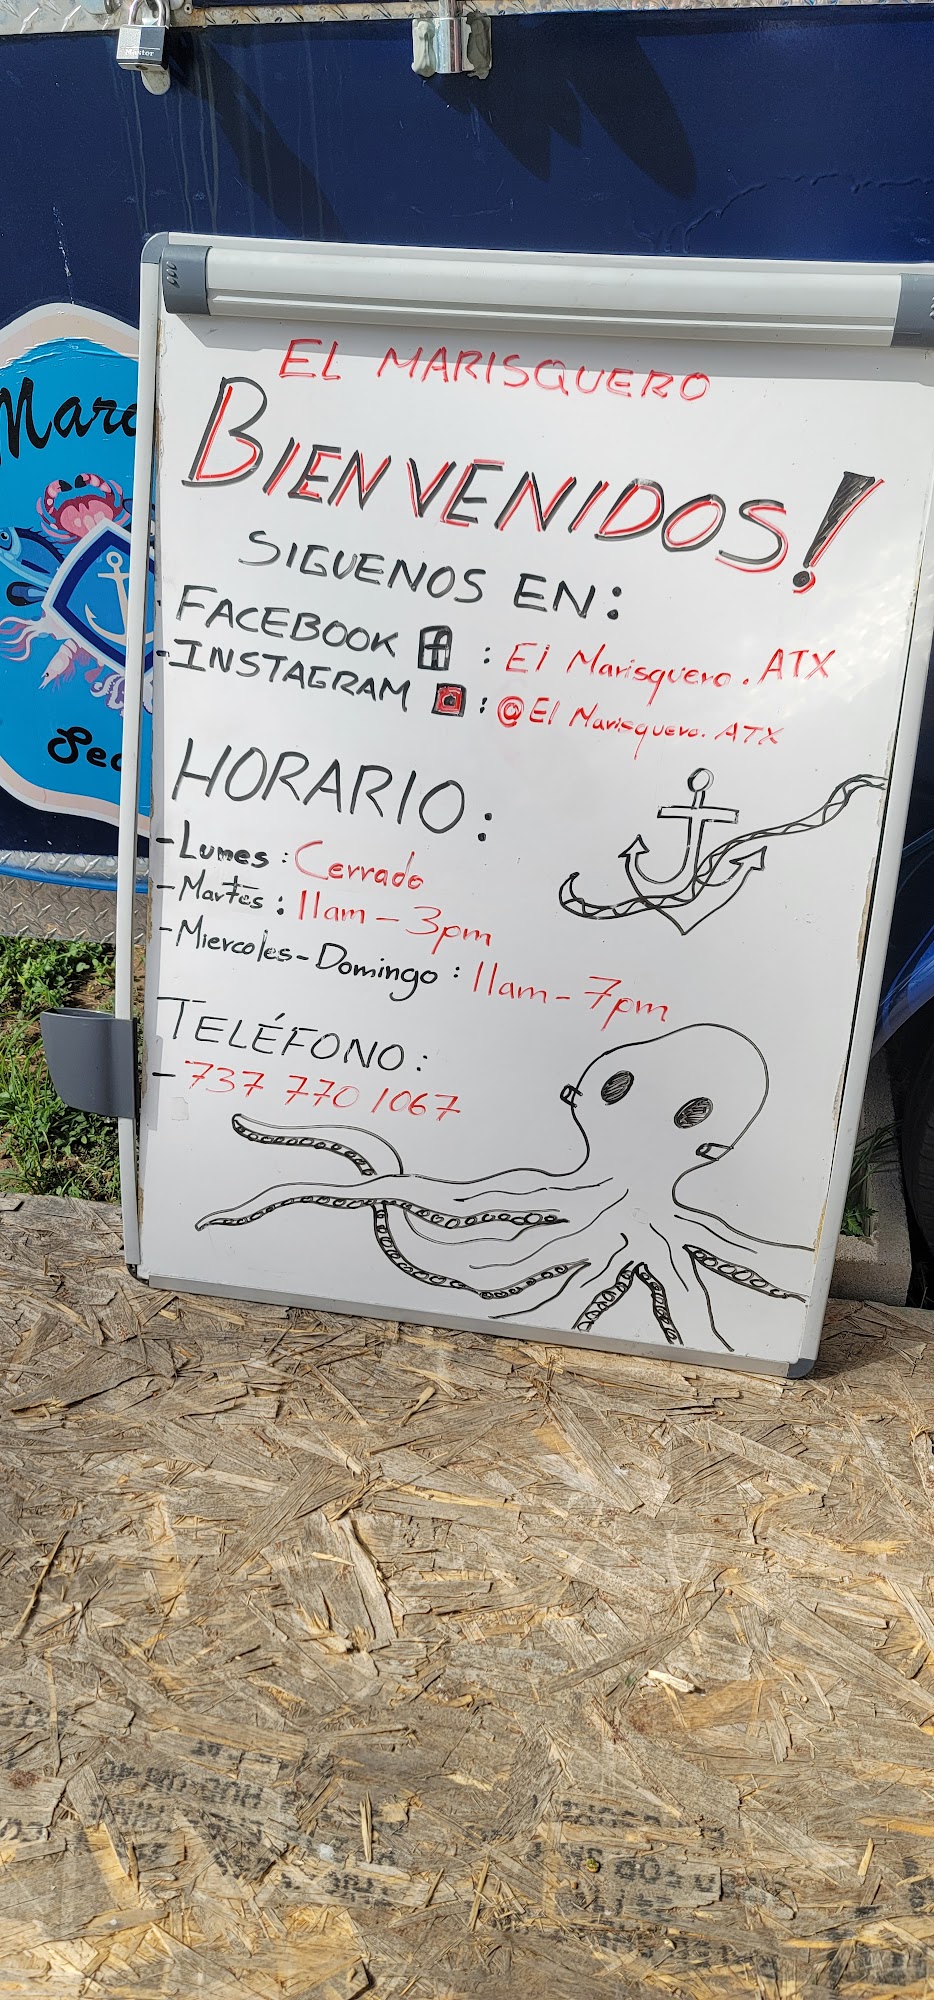 Master
EL MARISQUERO
BIENVENIDOS!
SIGUENOS EN:
-FACEBOOK f : El Marisquero.ATX
-INSTAGRAM : @El Marisquero.ATX
HORARIO:
-Lunes : Cerrado
-Martes : 11am-3pm
-Miercoles-Domingo : 11am-7pm
TELÉFONO:
-737 770 1067